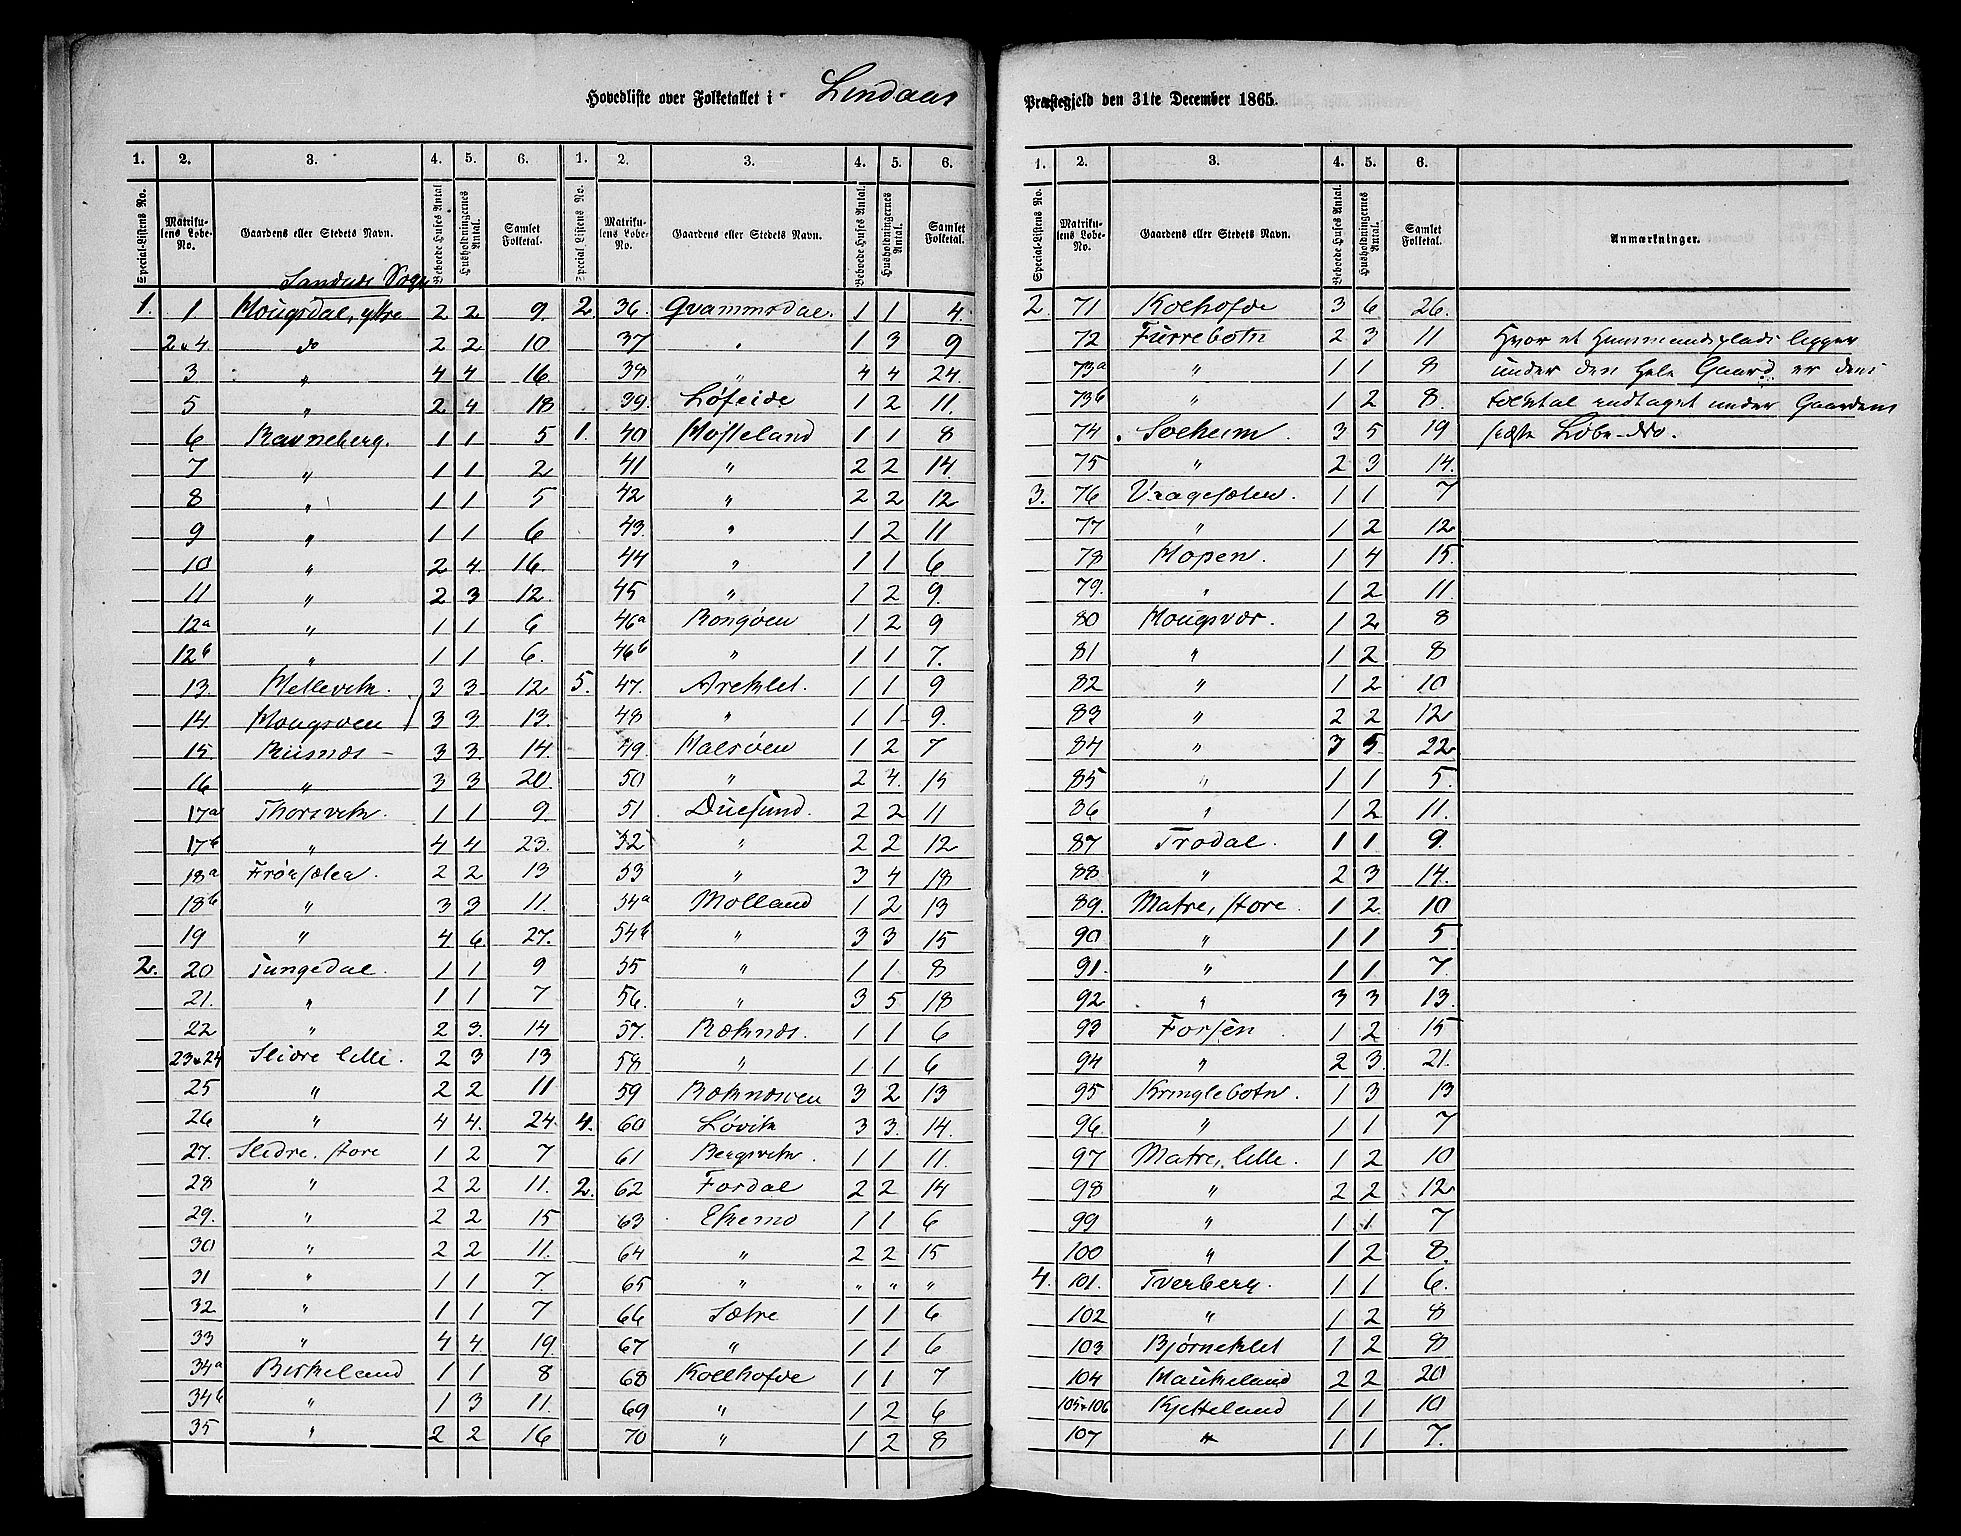 Hovedliste over Folketallet i Lindaas Præstegjeld den 31te December 1865.
1. 2. 3. 4. 5. 6. 1. 2. 3. 4. 5. 6.
Special-Listens No. Matrikulens Løbe-No. Gaardens eller Stedets Navn. Beboede Huses Antal Husholdningernes Antal. Samlet Folketal. Special Listens No. Matrikulens Løbe-No. Gaardens eller Stedets Navn. Beboede Huses Antal. Husholdningernes Antal. Samlet Folketal.
Sandnes Sogn
1. 1 Hougsdal, yttre 2 2 9 2 36. Qvammsdal. 1 1 4
2 & 4 do 2 2 10 37 " 1 3 9
3 " 4 4 16. 38 " 4 4 24.
5 " 2 4 18 39. Løfeide 1 2 11.
6 Ravneberg. 1 1 5 1. 40 Hosteland 1 1 8
7 " 1 1 2 41 " 2 2 14.
8 " 1 1 5 42 " 2 2 12
9 " 1 1 6 43. " 1 2 11
10 " 2 4 16. 44 " 1 1 6
11 " 2 3 12. 45 " 1 2 9.
12a " 1 1 6 46a Rongøen 1 2 9
12b " 1 1 6. 46b " 1 1 7.
13. Hellevik. 3 3 12 5. 47. Areklet 1 1 9
14. Hougsøen 3 3 13. 48 " 1 1 9.
15. Risnæs 3 3. 14. 49. Halsøen 1 2 7
16 " 3 3 20. 50 " 2 4. 15
17a Thorsvik. 1 1 9 51. Duesund. 2 2 11
17b " 4 4 23. 52 " 2 2 12
18a Frøisæter. 2 2 13 53 " 3 4 18
18b " 3 3 11. 54a Molland 1 2 13
19 " 4 6 27. 54b " 3 3 15
2. 20 Tungedal. 1 1 9 55 " 1 1 8
21. " 1 1 7 56. " 3 5 18
22 " 2 3. 14 57. Reknæs. 1 1 6
23 & 24 Sleire lille. 2 3 13 58 " 1 1 6
25 " 2 2 11 59 Reknæsøen 3 2 13
26 " 4 4. 24. 4. 60 Løvik 3 3. 14.
27. Sleire. store 1 2 7 61 Bergsvik. 1 1 11.
28 " 2 2 11. 2. 62 Fordal 2 2 14
29. " 2 2 15 63 Ekemo 1 1 6
30 " 2 2 11. 64 " 2 2 15
31 " 1 1 7. 65 " " " "
32 " 1 1 7 66 Sætre 1 1 6
33 " 4 4 19. 67 " 1 1 6
34a Birkeland 1 1 8 68 Kolhofde 1 1 7
34b " 1 3 11. 69 " 1 2 6
35 " 2 2 16 70 " 1 2 8
1. 2. 3. 4. 5. 6.
Special-Listens No. Matrikulens Løbe-No. Gaardens eller Stedets Navn. Beboede Huses Antal. Husholdningernes Antal. Samlet Folketal. Anmærkninger.
2 71 Kolhofde 3 6 26.
72 Furrebotn 2 3 11 Hvor et Huusmandsplads ligger
73a " 1 1 8 under den hele Gaard, er dens
73b " 1 2 8. Folketal indtaget under Gaardens
74 Solheim. 3 5 19 første Løbe-No.
75 " 2 3 14.
3. 76 Vragesæter. 1 1 7
77 " 1 2 12
78 Hopen. 1 4 15.
79. " 1 2 11.
80 Hougsvær. 1 2 8
81 " 1 2 8
82 " 1 2 10
83 " 2 2 12
84 " 3 5 22
85 " 1 1 5.
86 " 1 2 11.
87 Trodal. 1 1 9.
88 " 2 3 14.
89. Matre, store 1 2 10
90 " 1 1 5
91. " 1 1 7.
92 " 3 3 13.
93 Forsen. 1 2 15
94 " 2 3. 21.
95 Kringlebotn 1 3 13
96. " 1 1 7
97 Matre, lille. 1 2 10
98 " 2 2 12
99 " 1 1 7
100 " 1 2 8.
4. 101. Tverberg. 1 1 6.
102 " 1 2 8
103 Bjørneklet 1 2 8
104 Haukeland 2 2 20
105 & 106 Kjetteland 1 1 10
107 " 1 1 7.